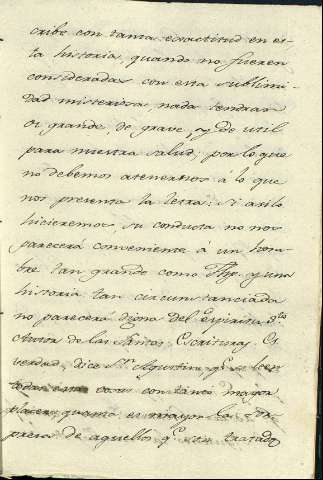 cribe con tanta exactitud en es-
ta historia, quando no fueren
consideradas con esta sublimi-
dad misteriosa, nada tendran
de grande, de grave, y de util
para nuestra salud; por lo que
no debemos atenernos á lo que
nos presenta la letra: si asi lo
hicieremos, su conducta no nos
parecerá conveniente á un hom-
bre tan grande como y una
historia tan circunstanciada
no parecerá digna del espiritu Sto
Autor de las Santas Escrituras. Es
verdad, dice Sn. Agustin, qe. se leen
todas estas cosas con tanto mayor
placer, quanto es mayor la sor-
presa de aquellos qe. han tratado